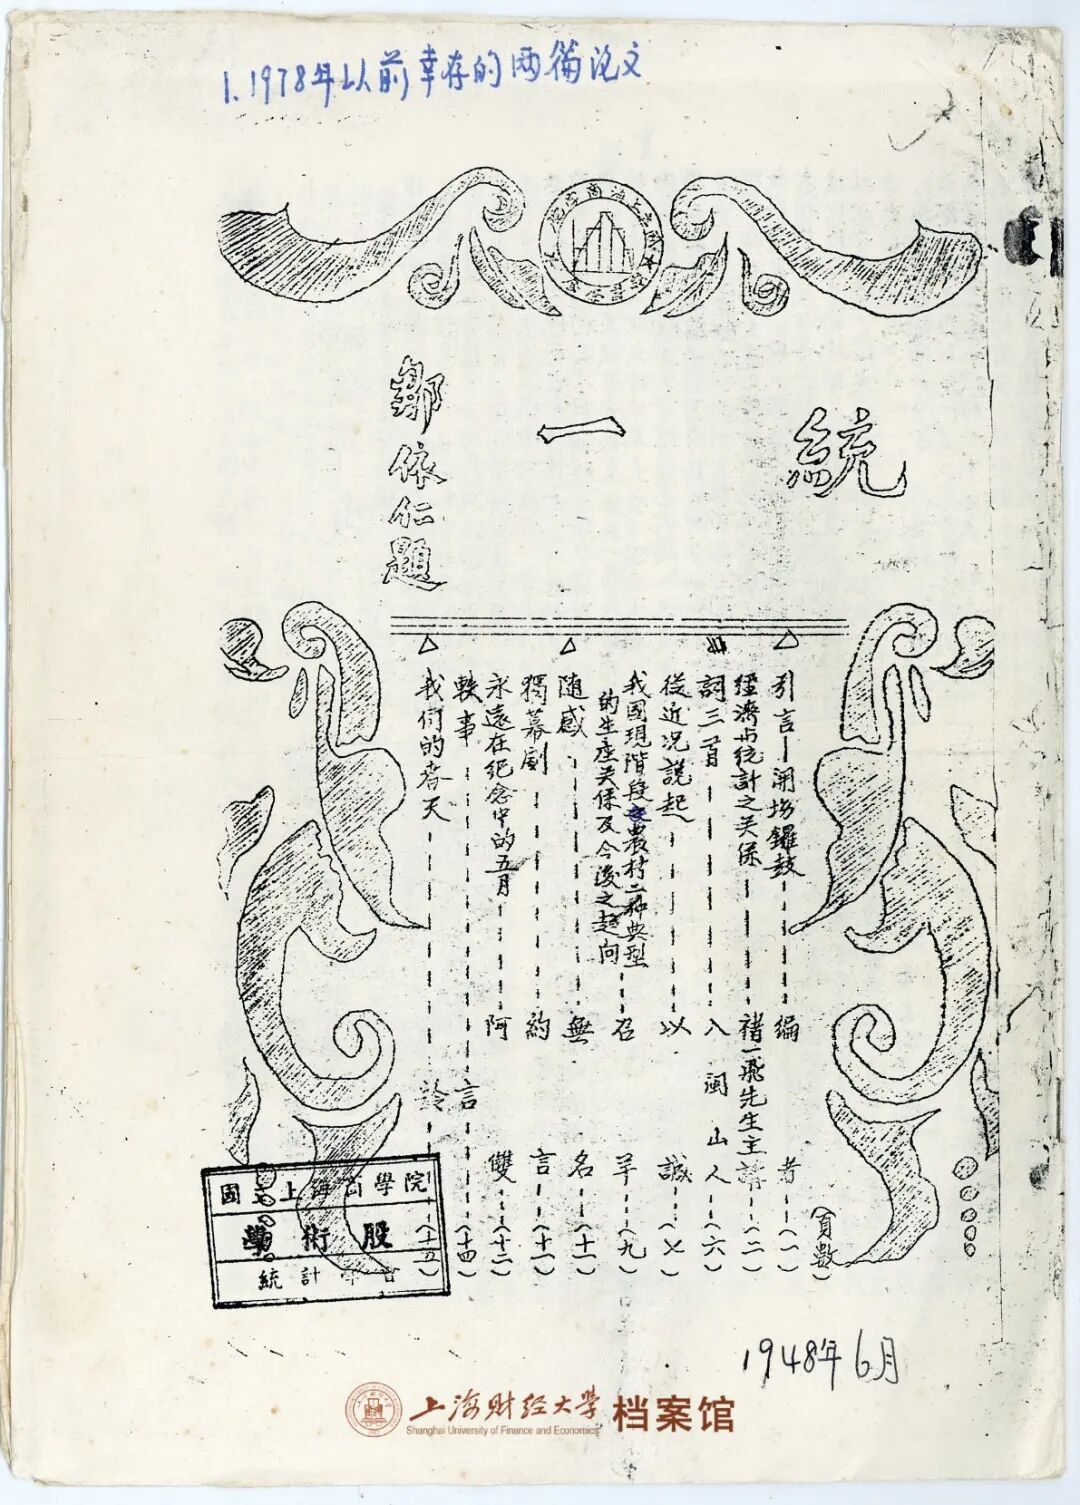 1. 1978年以前幸存的两篇论文
統一
鄒依仁題
(頁數)
引言—開場鑼鼓 編者 (一)
經濟与統計之关係 褚一飛先生主講 (二)
詞三首 八閩山人 (六)
從近况說起 以誠 (七)
我國現階段農村二种典型
的生産关係及今後之趋向 召羊 (九)
随感 無名 (十一)
獨幕劇 約言 (十一)
永遠在纪念中的五月 阿雙 (十二)
軼事 言 (十四)
我们的春天 (十五)
國立上海商學院
學術股
統計學會
1948年6月
上海财经大学 档案馆
Shanghai University of Finance and Economics